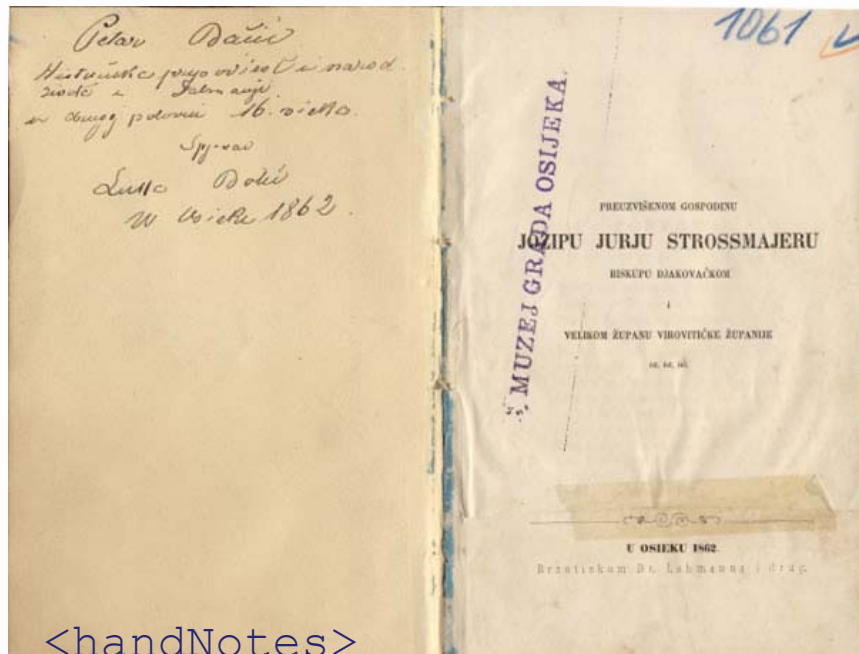 Petar Bačić
Histnička pripoviest iz narod.
u Dalmaciji
u drugoj polovini 16. vieka.
Spjevao
Luka Botić
U Osieku 1862.
1061
MUZEJ GRADA OSIJEKA.
PREUZVIŠENOM GOSPODINU
JOZIPU JURJU STROSSMAJERU
BISKUPU DJAKOVAČKOM
i
VELIKOM ŽUPANU VIROVITIČKE ŽUPANIJE
U OSIEKU 1862.
Brzotiskom Dr. Lehmanna i drug.
<handNotes>